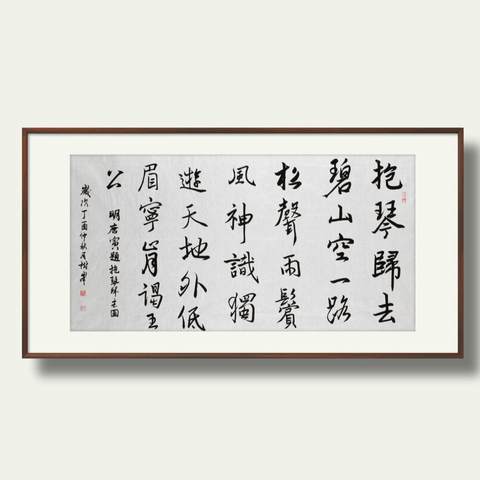 抱琴歸去
碧山空一路
松聲雨鬢
風神識獨
遊天地外低
眉寧肯謁王
公
明唐寅題抱琴歸去圖
歲次丁酉仲秋月